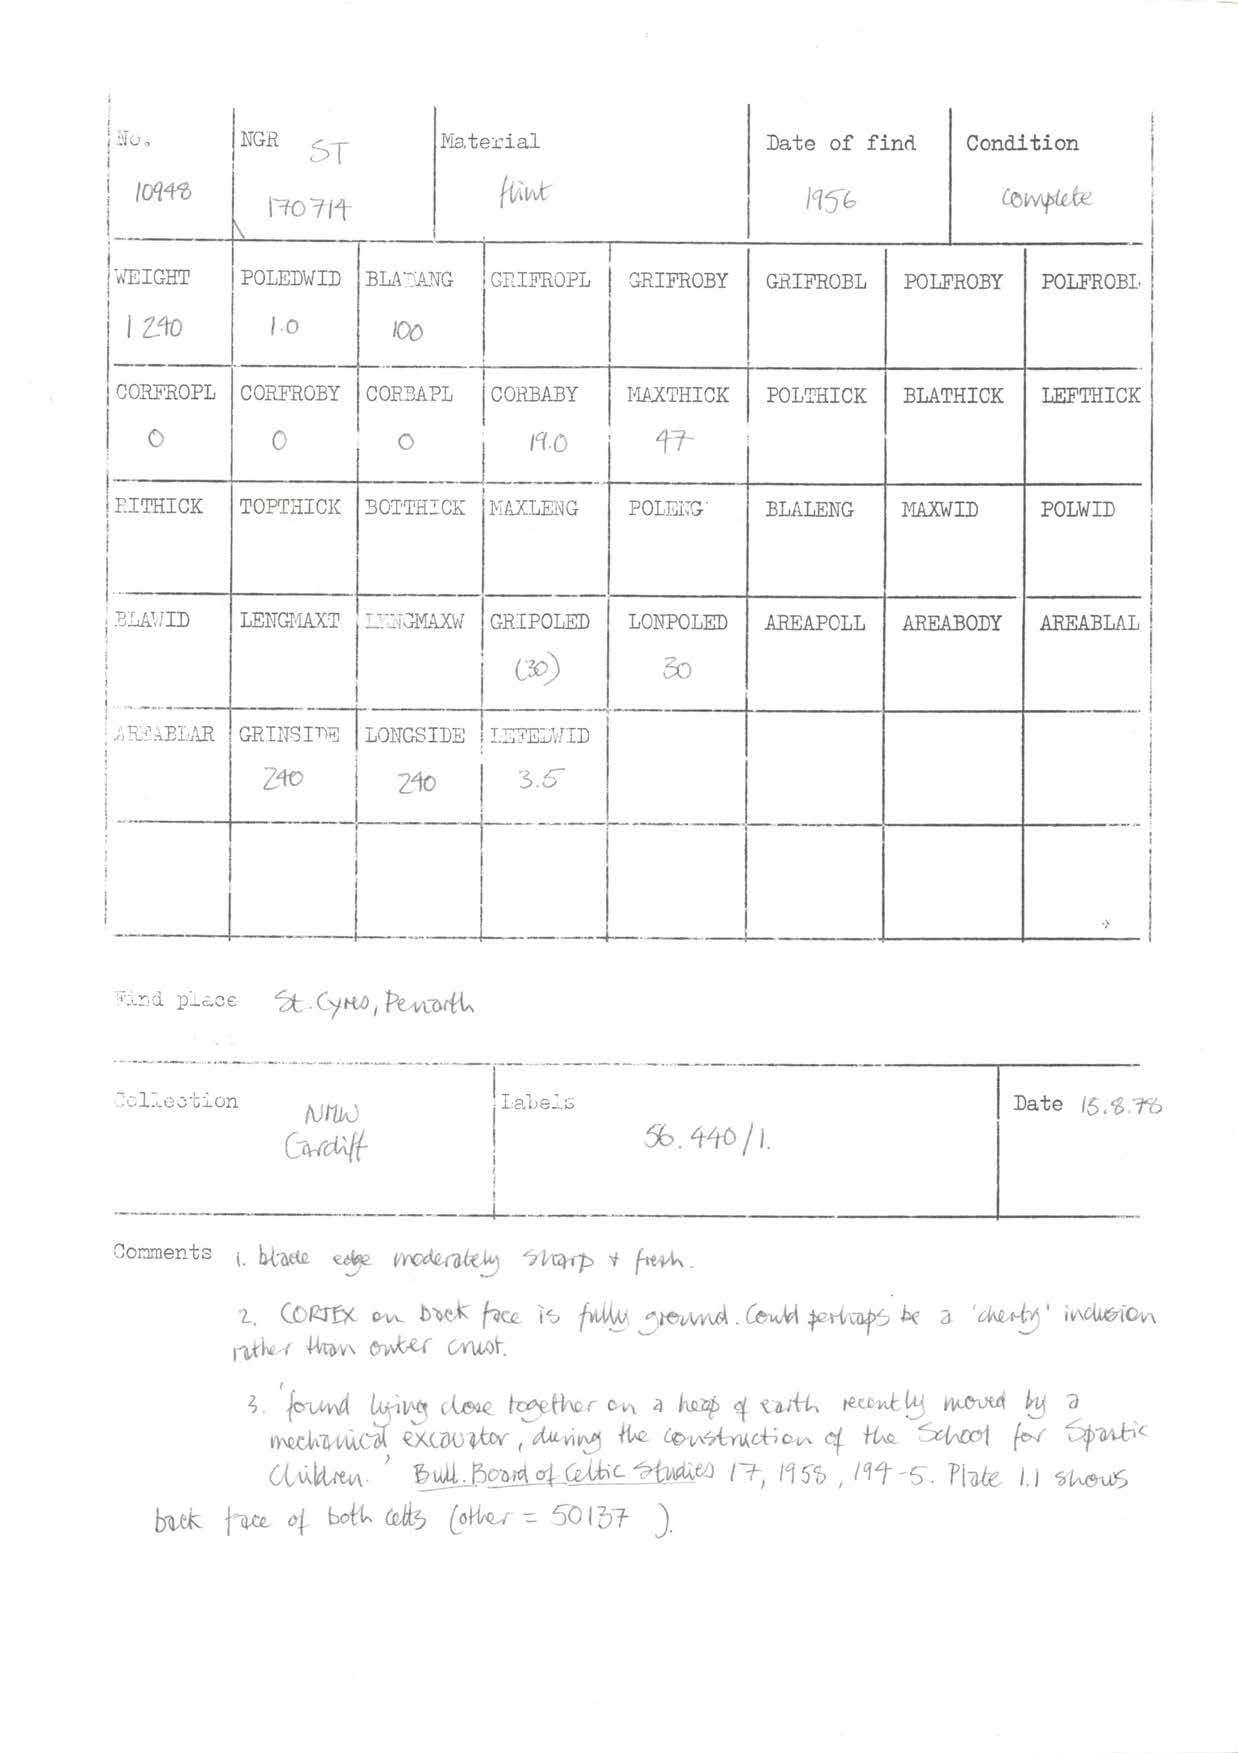 No. NGR ST Material Date of find Condition
10948 170714 flint 1956 complete
WEIGHT POLEDWID BLADANG GRIFROPL GRIFROBY GRIFROBL POLFROBY POLFROBL
1240 1.0 100
CORFROPL CORFROBY CORBAPL CORBABY MAXTHICK POLTHICK BLATHICK LEFTHICK
0 0 0 19.0 47
RITHICK TOPTHICK BOTTHICK MAXLENG POLENG BLALENG MAXWID POLWID
BLAWID LENGMAXT LENGMAXW GRIPOLED LONPOLED AREAPOLL AREABODY AREABLAL
(30) 30
AREABLAR GRINSIDE LONGSIDE LEFEDWID
240 240 3.5
Find place St. Cyres, Penarth
Collection Labels Date 15.8.78
NMW
Cardiff 56.440/1.
Comments 1. blade edge moderately sharp + fresh.
2. CORTEX on back face is fully ground. Could perhaps be a 'cherty' inclusion
rather than outer crust.
3. 'found lying close together on a heap of earth recently moved by a
mechanical excavator, during the construction of the School for Spastic
Children.' Bull. Board of Celtic Studies 17, 1958, 194-5. Plate 1.1 shows
back face of both celts (other = 50137 ).